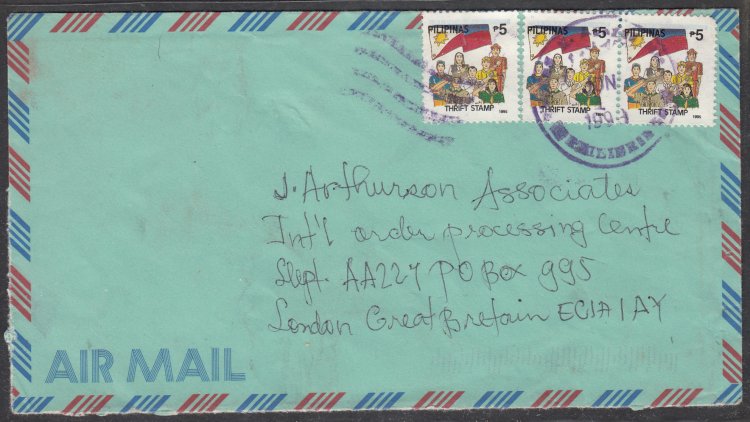 PILIPINAS ₱5
THRIFT STAMP 1995
PILIPINAS ₱5
THRIFT STAMP
PILIPINAS ₱5
THRIFT STAMP 1995
J. Arthurson Associates
Int'l order processing Centre
Dept. AA227 PO BOX 995
London Great Bretain EC1A 1AY
AIR MAIL